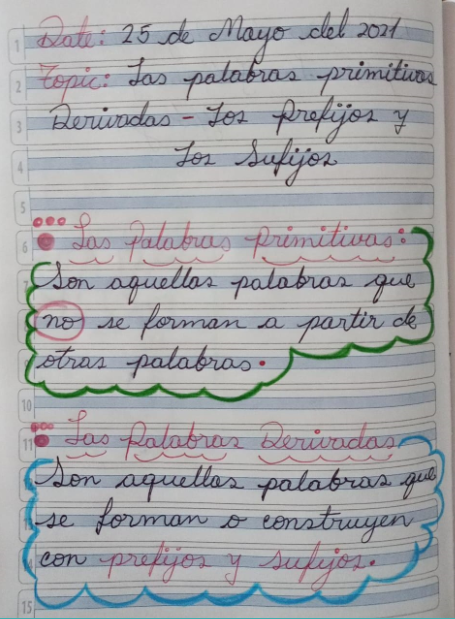 1 Date: 25 de Mayo del 2021
2 Topic: Las palabras primitivas
3 Derivadas - Los Prefijos y
4 Los Sufijos
5
6 Las Palabras Primitivas:
7 Son aquellas palabras que
no se forman a partir de
otras palabras.
10
11 Las Palabras Derivadas
Son aquellas palabras que
se forman o construyen
con prefijos y sufijos.
15